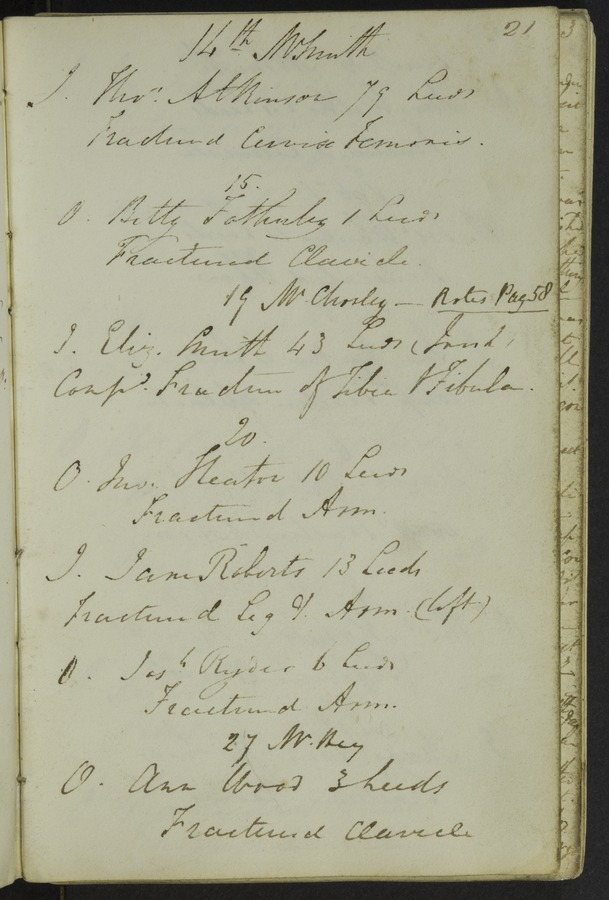 21
14th Mr Smith
I. Thos. Atkinson 79 Leeds
Fractured Cervix Femoris.
15.
O. Betty Fotherley 1 Leeds
Fractured Clavicle.
19 Mr Chorley — Notes Pag. 58
I. Eliz. Smith 43 Leeds
Compd. Fracture of Tibia & Fibula.
20.
O. Jno. Heaton 10 Leeds
Fractured Arm.
I. Jane Roberts 13 Leeds
Fractured Leg & Arm. (left)
O. Josh Ryder 6 Leeds
Fractured Arm.
27 Mr. Hey
O. Ann Wood 3 Leeds
Fractured Clavicle